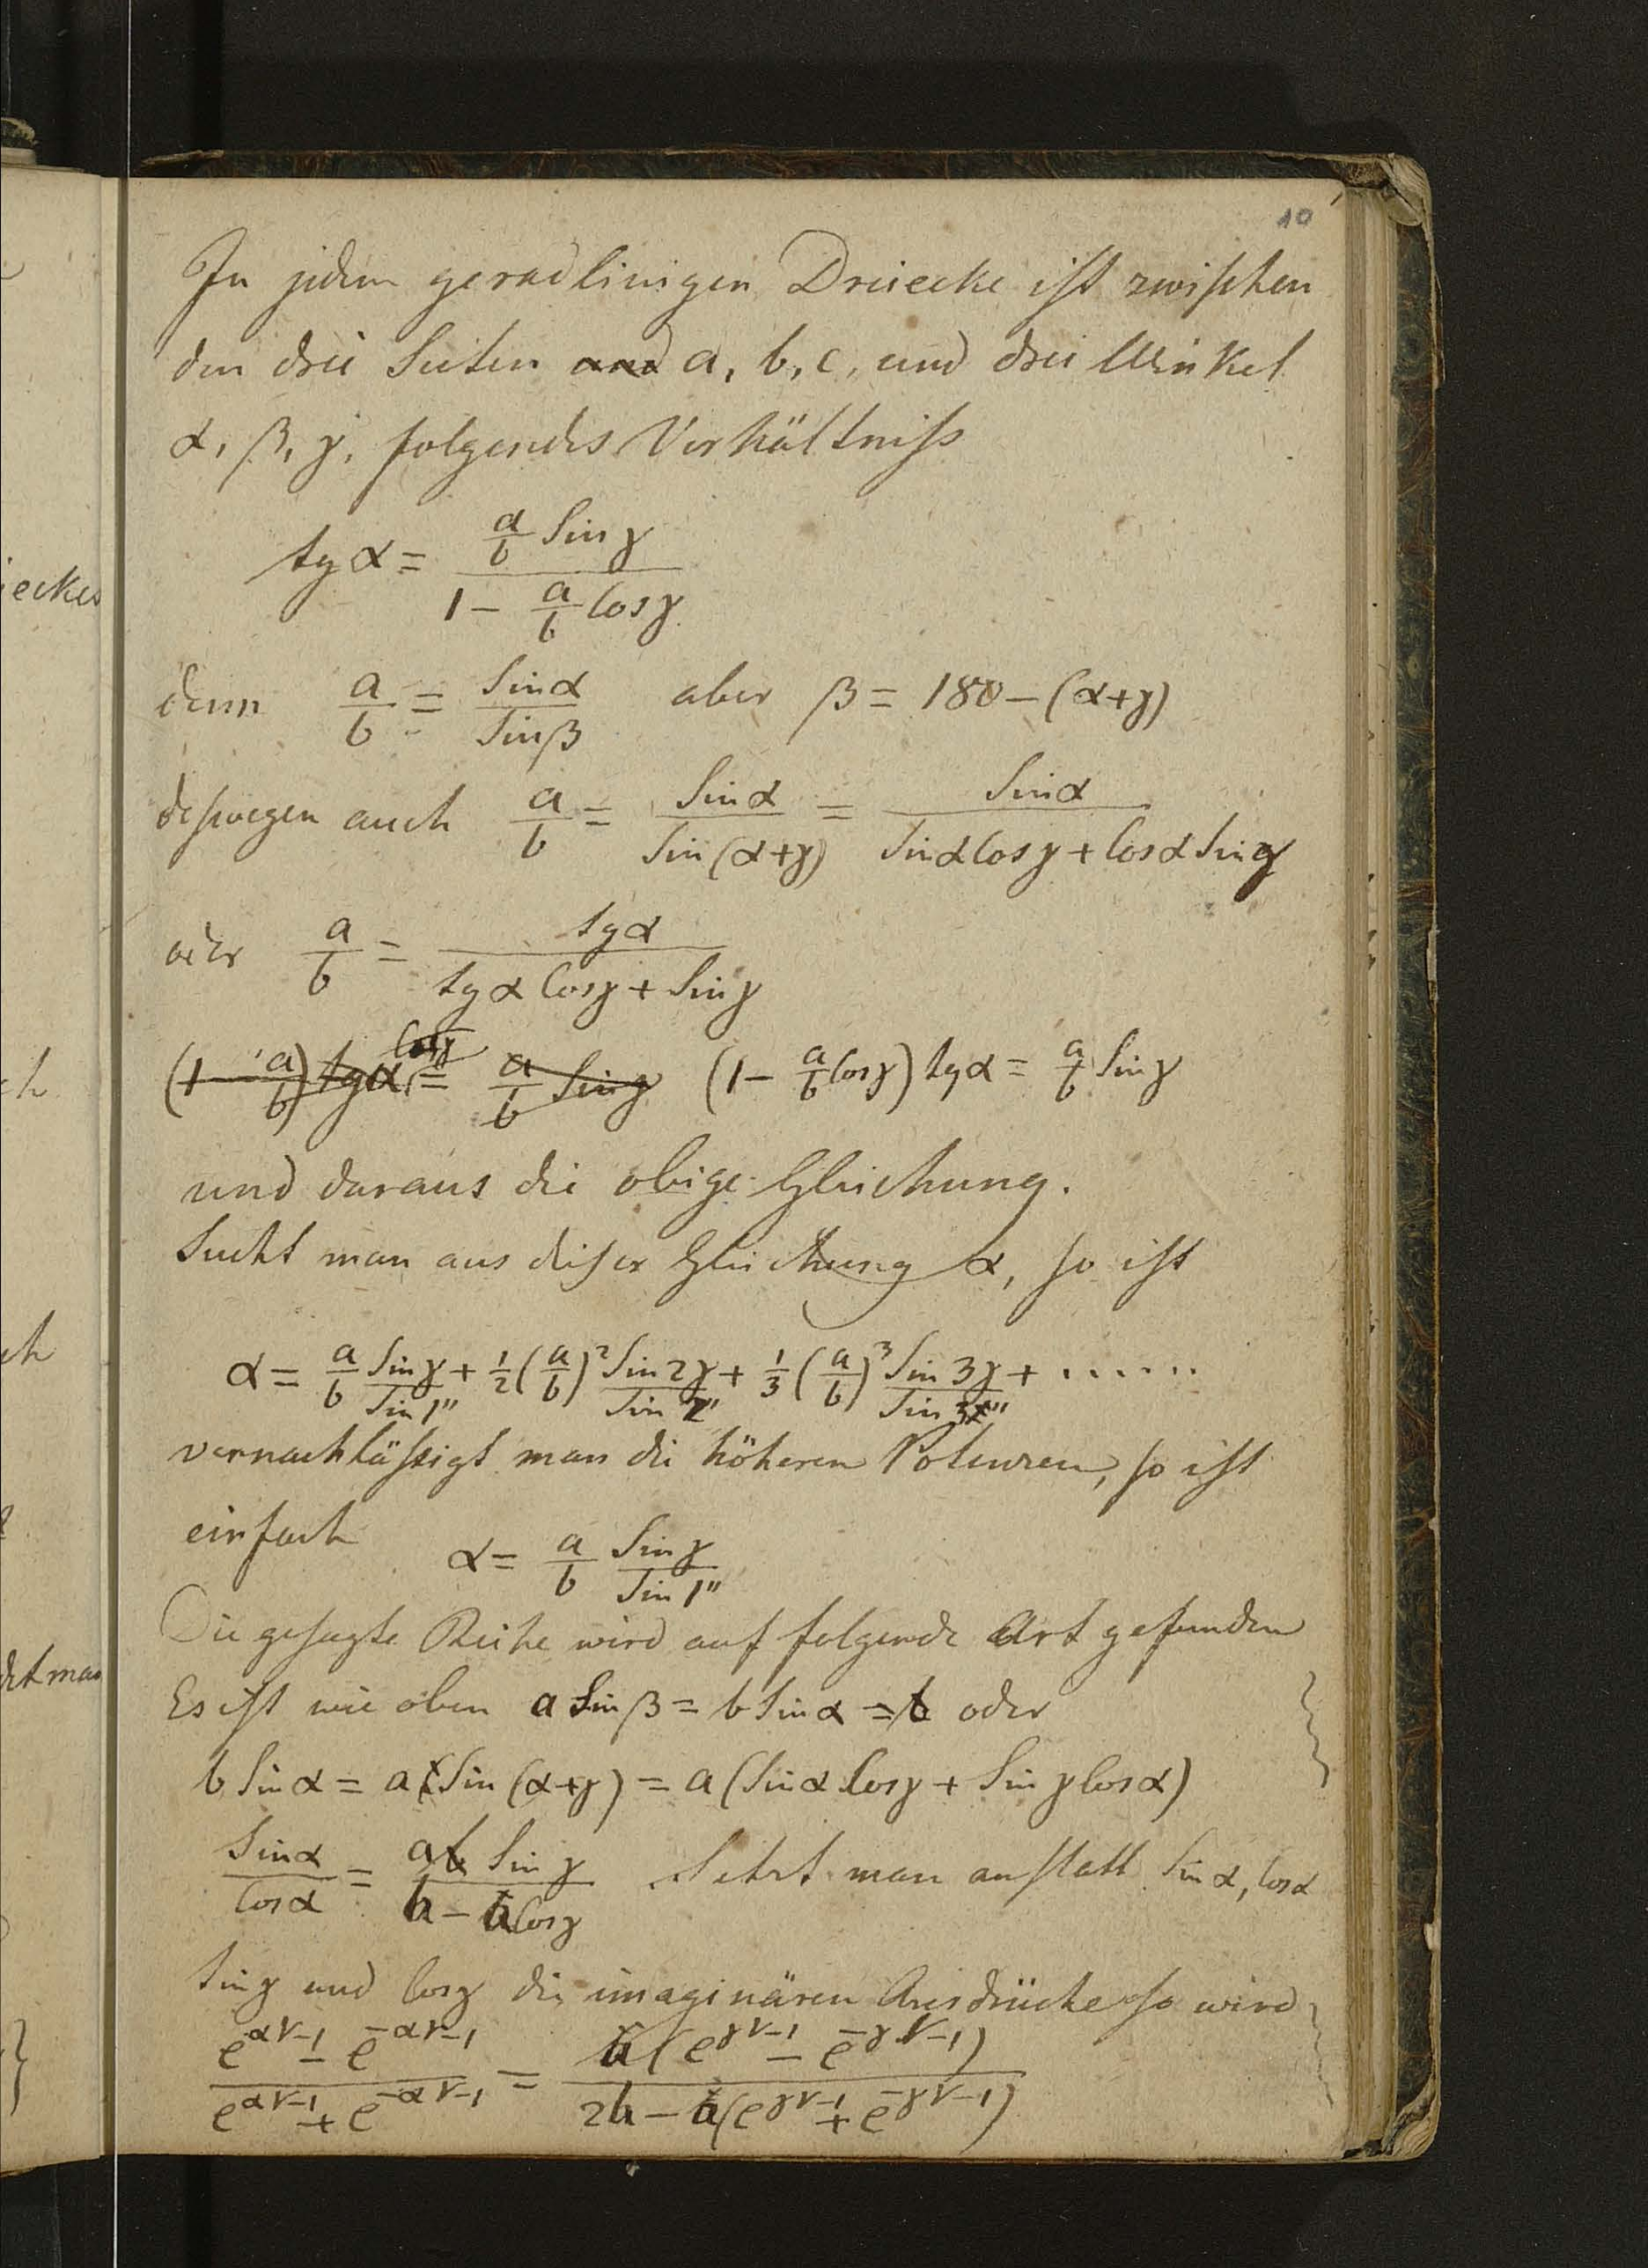 10
In jedem geradlinigen Dreiecke ist zwischen
den drei Seiten and a, b, c, und drei Winkel
α, β, γ, folgendes Verhältniss
tg α = (a/b Sin γ) / (1 − a/b Cos γ)
denn a/b = Sin α / Sin β aber β = 180 − (α+γ)
desswegen auch a/b = Sin α / Sin (α+γ) = Sin α / (Sin α Cos γ + Cos α Sin γ)
oder a/b = tg α / (tg α Cos γ + Sin γ)
(1 − a/b) tg α Cos γ = a/b Sin γ (1 − a/b Cos γ) tg α = a/b Sin γ
und daraus die obige Gleichung.
Sucht man aus dieser Gleichung α, so ist
α = a/b Sin γ / Sin 1" + 1/2 (a/b)² Sin 2γ / Sin 2" + 1/3 (a/b)³ Sin 3γ / Sin 3" + ......
vernachlässigt man die höheren Potenzen, so ist
einfach α = a/b Sin γ / Sin 1"
Die gesagte Reihe wird auf folgende Art gefunden
Es ist wie oben a Sin β = b Sin α = b oder
b Sin α = a Sin (α+γ) = a (Sin α Cos γ + Sin γ Cos α)
Sin α / Cos α = a Sin γ / (b − a Cos γ) Setzt man anstatt Sin α, Cos α
Sin γ und Cos γ die imaginären Ausdrücke so wird
(e^{α√−1} − e^{−α√−1}) / (e^{α√−1} + e^{−α√−1}) = a (e^{γ√−1} − e^{−γ√−1}) / (2b − a (e^{γ√−1} + e^{−γ√−1}))
ieckes
ch
ch
det man